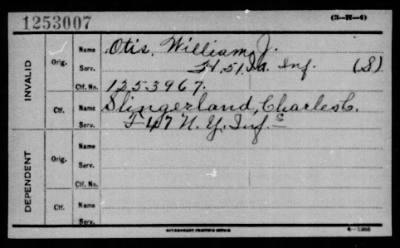 1253007
(3-H-4)
INVALID
Orig.
Name Otis, William J.
Serv. H. 51, Ia. Inf. (S)
Ctf. No. 1253967.
Ctf.
Name Slingerland, Charles C.
Serv. F 47 N.Y. Inf.
DEPENDENT
Orig.
Name
Serv.
Ctf. No.
Ctf.
Name
Serv.
GOVERNMENT PRINTING OFFICE